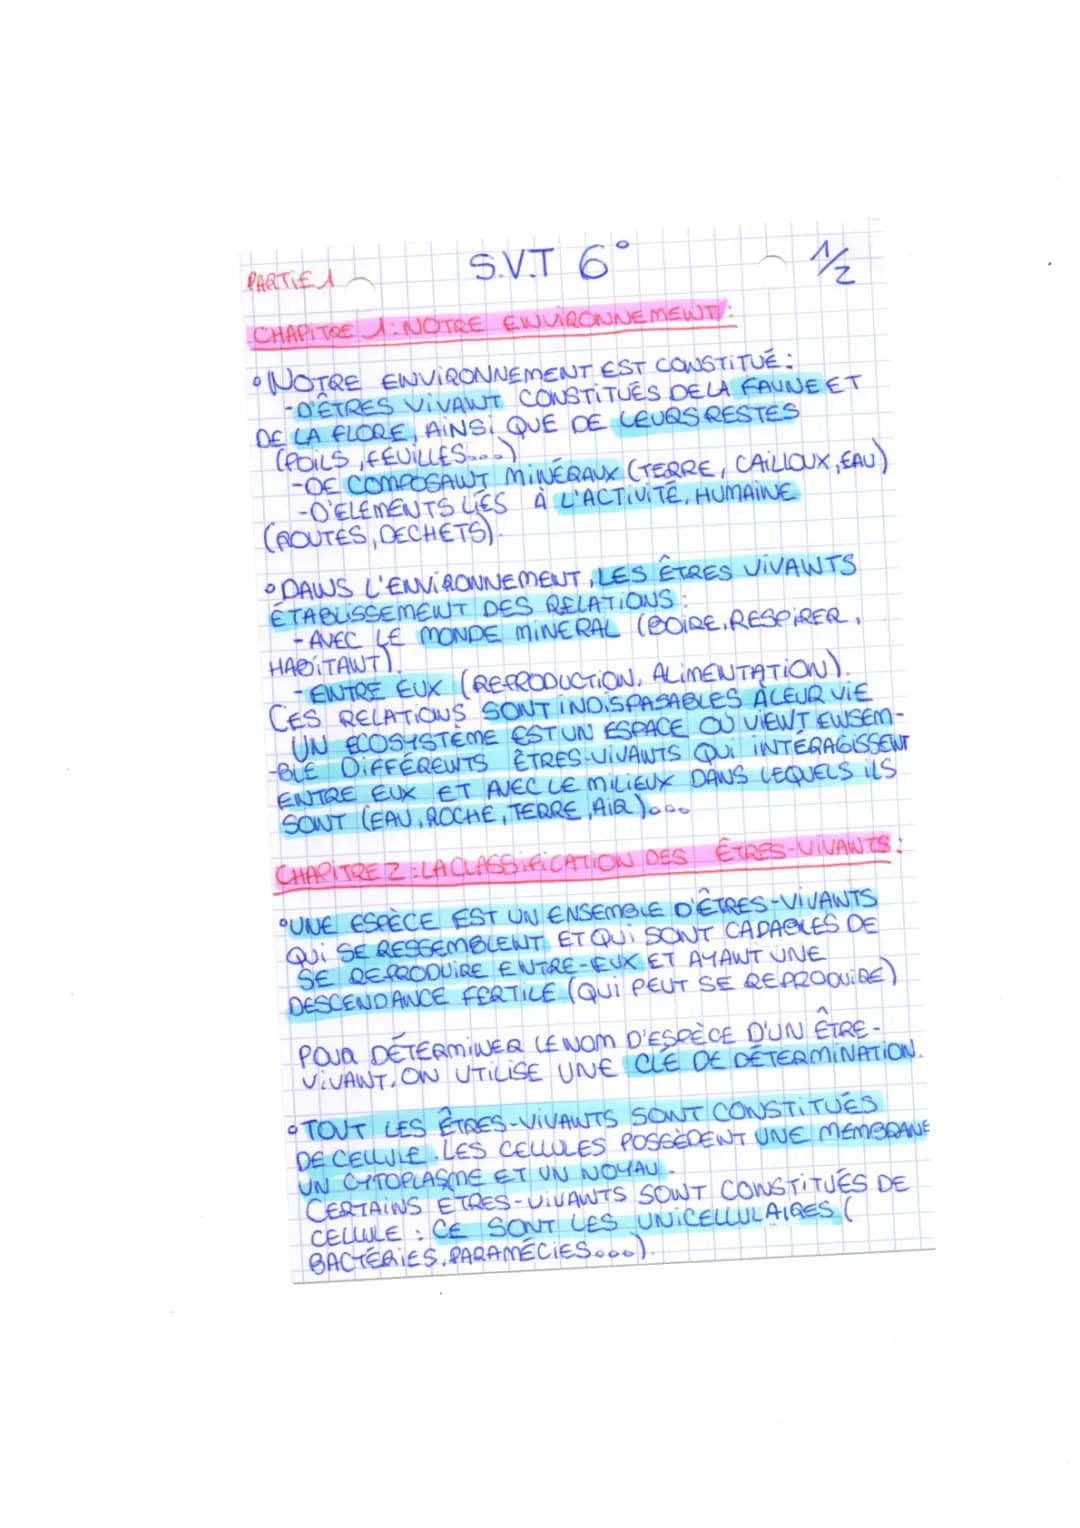 PARTIE 1 S.V.T 6° 1/2
CHAPITRE 1: NOTRE ENVIRONNEMENT:
• NOTRE ENVIRONNEMENT EST CONSTITUÉ:
-D'ÊTRES VIVANT CONSTITUÉS DE LA FAUNE ET
DE LA FLORE, AINSI QUE DE LEURS RESTES
(POILS, FEUILLES...)
-DE COMPOSANT MINÉRAUX (TERRE, CAILLOUX, EAU)
-D'ELEMENTS LIÉS À L'ACTIVITÉ, HUMAINE
(ROUTES, DECHETS).
• DANS L'ENVIRONNEMENT, LES ÊTRES VIVANTS
ÉTABLISSEMENT DES RELATIONS:
- AVEC LE MONDE MINERAL (BOIRE, RESPIRER,
HABITANT).
- ENTRE EUX (REPRODUCTION, ALIMENTATION).
CES RELATIONS SONT INDISPASABLES À LEUR VIE
UN ECOSYSTÈME EST UN ESPACE OÙ VIENT ENSEM-
-BLE DIFFÉRENTS ÊTRES-VIVANTS QUI INTÉRAGISSENT
ENTRE EUX ET AVEC LE MILIEUX DANS LEQUELS ILS
SONT (EAU, ROCHE, TERRE, AIR)...
CHAPITRE 2: LA CLASSIFICATION DES ÊTRES-VIVANTS:
• UNE ESPÈCE EST UN ENSEMBLE D'ÊTRES-VIVANTS
QUI SE RESSEMBLENT ET QUI SONT CAPABLES DE
SE REPRODUIRE ENTRE-EUX ET AYANT UNE
DESCENDANCE FERTILE (QUI PEUT SE REPRODUIRE)
POUR DÉTERMINER LE NOM D'ESPÈCE D'UN ÊTRE-
VIVANT, ON UTILISE UNE CLÉ DE DÉTERMINATION.
• TOUT LES ÊTRES-VIVANTS SONT CONSTITUÉS
DE CELLULE. LES CELLULES POSSÈDENT UNE MEMBRANE
UN CYTOPLASME ET UN NOYAU.
CERTAINS ETRES-VIVANTS SONT CONSTITUÉS DE
CELLULE: CE SONT LES UNICELLULAIRES (
BACTÉRIES, PARAMÉCIES...).